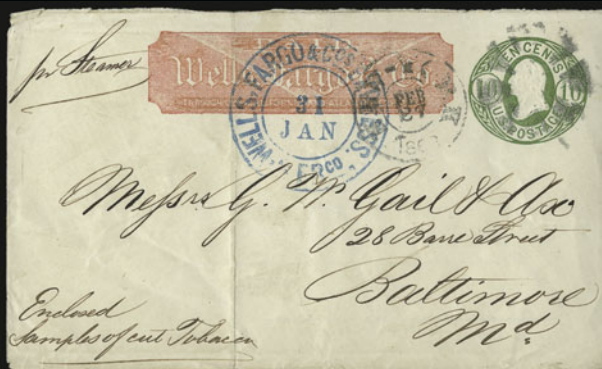 pr Steamer
Wells, Fargo & Co.
WELLS, FARGO & COS EXPRESS
31
JAN
FEB
27
TEN CENTS
10 10
U.S. POSTAGE
Messrs G. W. Gail & Ax
28 Barre Street
Baltimore
Md.
Enclosed
Samples of cut Tobacco